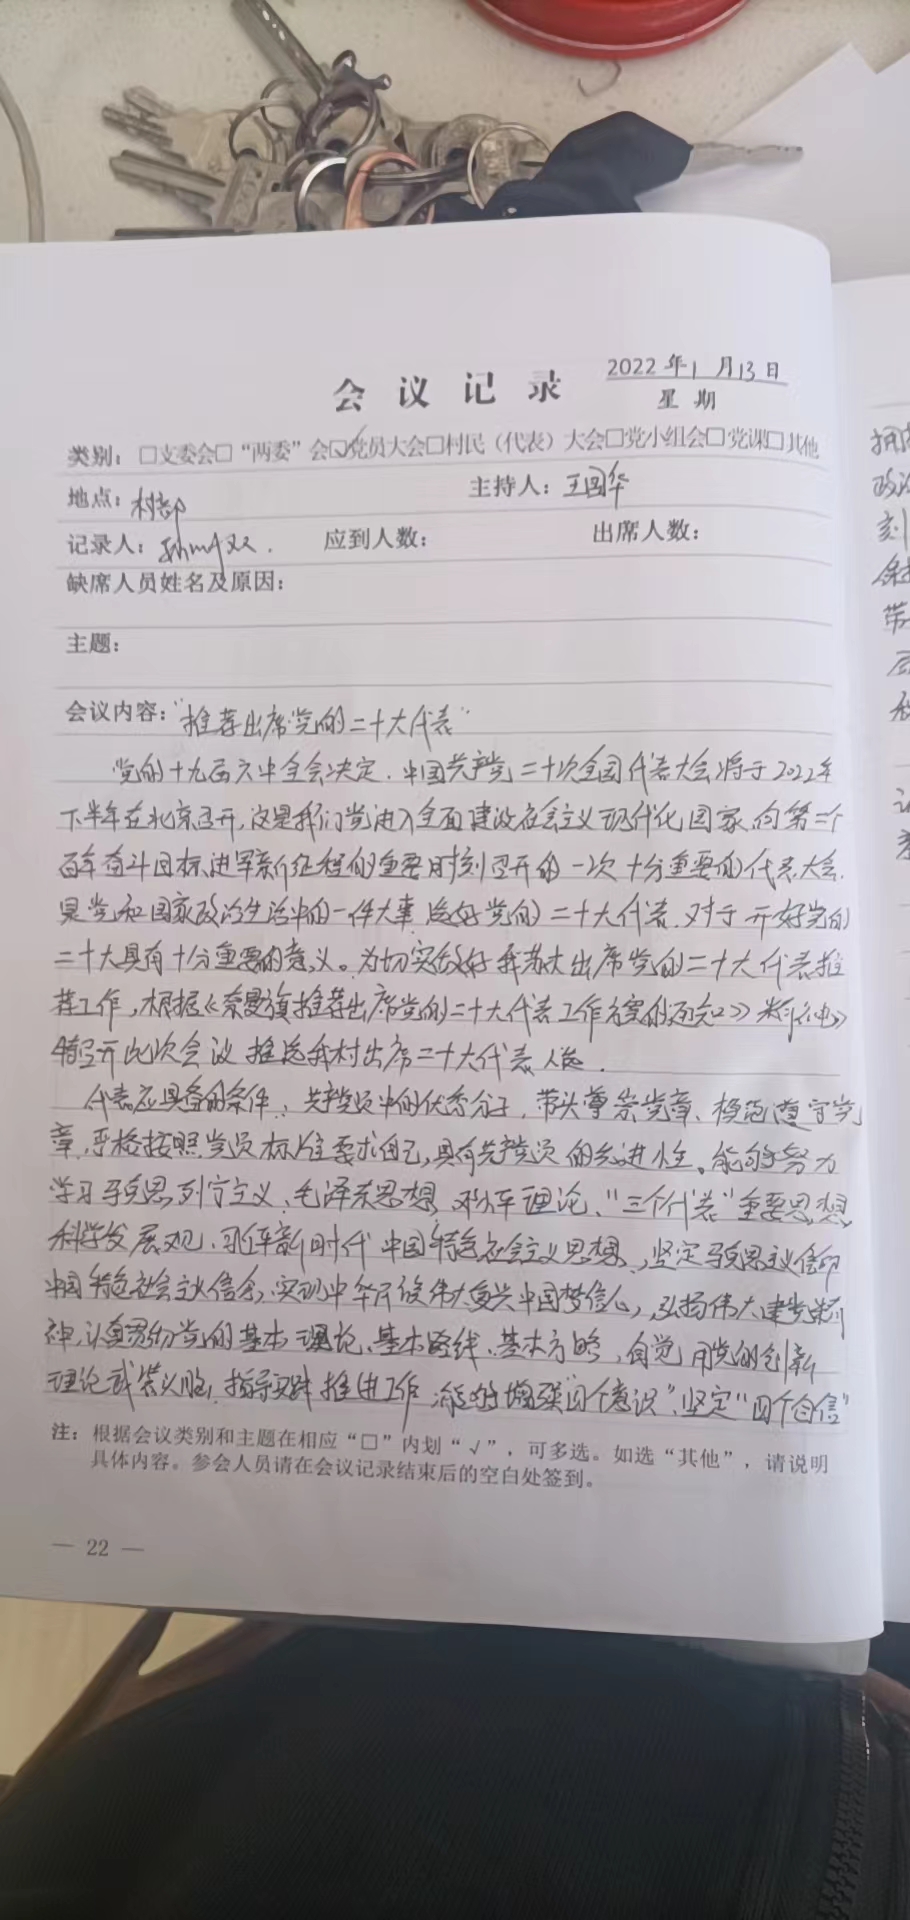 2022年1月13日
会议记录
星期
类别：□支委会□“两委”会☑党员大会□村民（代表）大会□党小组会□党课□其他
地点：村部 主持人：王国华
记录人： 应到人数： 出席人数：
缺席人员姓名及原因：
主题：
会议内容："推荐出席党的二十大代表"
党的十九届六中全会决定.中国共产党二十次全国代表大会将于2022年
下半年在北京召开,这是我们党进入全面建设社会主义现代化国家、向第二个
百年奋斗目标进军新征程的重要时刻召开的一次十分重要的代表大会.
是党和国家政治生活中的一件大事.选好党的二十大代表.对于开好党的
二十大具有十分重要的意义。为切实做好我苏木出席党的二十大代表推
荐工作,根据《奈曼旗推荐出席党的二十大代表工作方案的通知》精神》
特召开此次会议 推选我村出席二十大代表人选.
代表应具备的条件:共产党员中的优秀分子,带头尊崇党章、模范遵守党
章,严格按照党员标准要求自己,具有共产党员的先进性。能够努力
学习马克思列宁主义、毛泽东思想、邓小平理论、"三个代表"重要思想、
科学发展观、习近平新时代中国特色社会主义思想,坚定马克思主义信仰
中国特色社会主义信念,实现中华民族伟大复兴中国梦信心,弘扬伟大建党精
神,认真贯彻党的基本理论、基本路线、基本方略,自觉用党的创新
理论武装头脑,指导实践 推进工作 能够增强"四个意识"、坚定"四个自信"
注：根据会议类别和主题在相应“□”内划“√”，可多选。如选“其他”，请说明
具体内容。参会人员请在会议记录结束后的空白处签到。
— 22 —
拥
政
刻
带